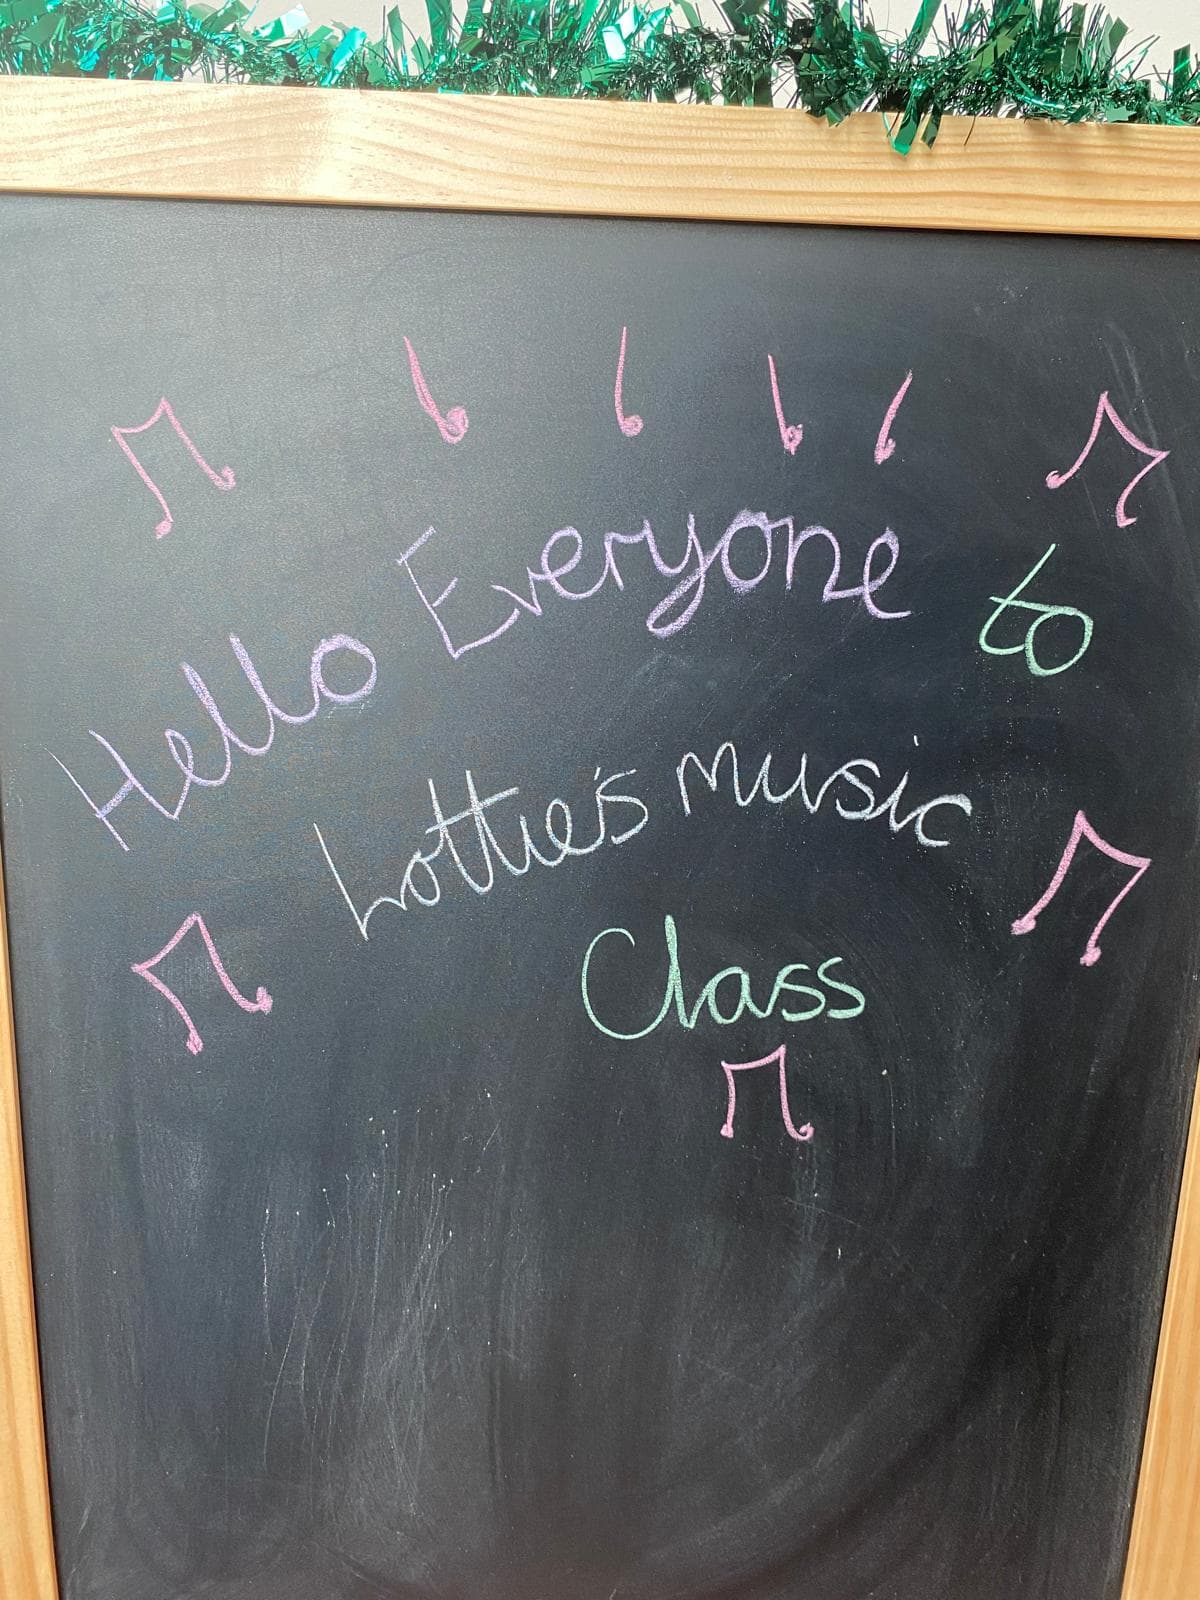 Hello Everyone to
Lottie's music
Class